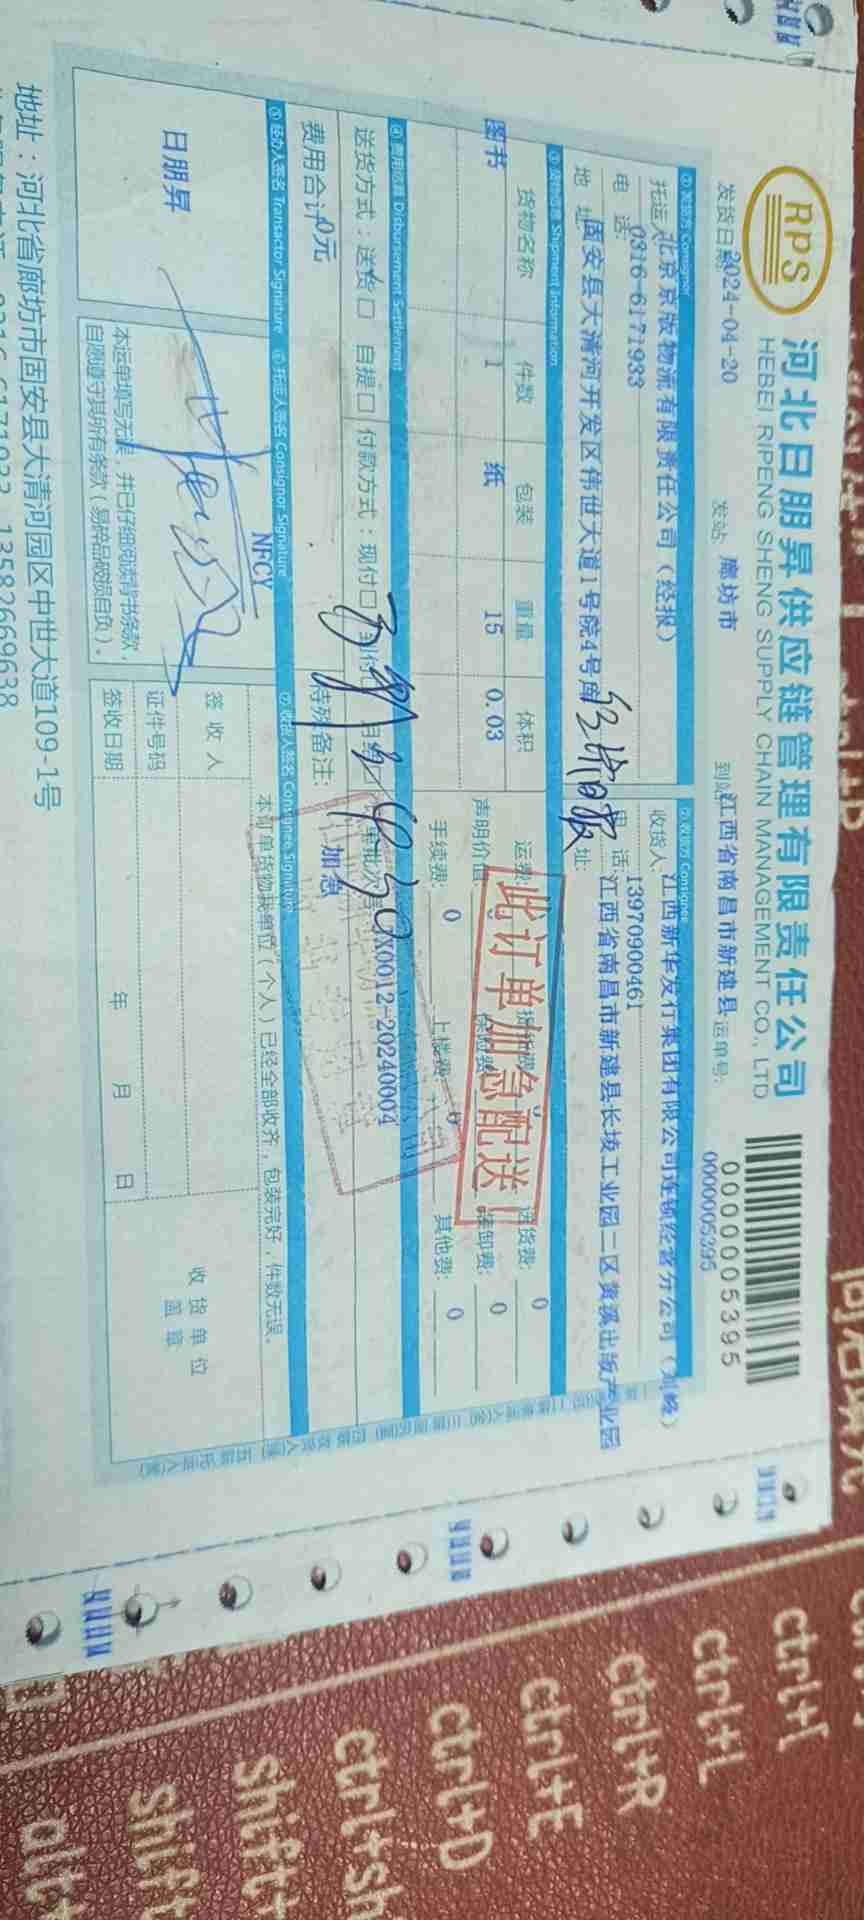 RPS
河北日朋昇供应链管理有限责任公司
HEBEI RIPENG SHENG SUPPLY CHAIN MANAGEMENT CO., LTD
0000005395
发货日期:2024-04-20 发站 廊坊市 到站江西省南昌市新建县 运单号: 0000005395
①发货方 Consignor ②收货方 Consignee
托运人北京京版物流有限责任公司（经报） 收货人:江西新华发行集团有限公司连锁经营分公司（刘峰）
电 话:0316-6171933 电 话:13970900461
地 址固安县大清河开发区伟世大道1号院4号库 址:江西省南昌市新建县长堎工业园二区黄溪出版产业园
经济日报
③货物信息 Shipment Information
货物名称 件数 包装 重量 体积 运费: 送货费: 0
图书 1 纸 15 0.03 声明价值 保险费: 装卸费: 0
手续费: 0 上楼费: 0 其他费: 0
此订单加急配送
④费用结算 Disbursement Settlement
送货方式:送货口 自提口 付款方式:现付口 JX0012-20240004
费用合计0元 特殊备注: 加急
⑤经办人签名 Transactor Signature ⑥托运人签名 Consignor Signature ⑦收货人签名 Consignee Signature
日朋昇
NFCY
本订单货物我单位（个人）已经全部收齐，包装完好，件数无误。
签 收 人
证件号码
签收日期 年 月 日
收 货 单 位
盖 章
本运单填写无误，并已仔细阅读背书条款，
自愿遵守其所有条款（易碎品破损自负）。
地址：河北省廊坊市固安县大清河园区中世大道109-1号
0316-6171933 13582669638
ctrl+I
ctrl+L
ctrl+R
ctrl+E
ctrl+D
ctrl+sh
shift+
shift
alt+